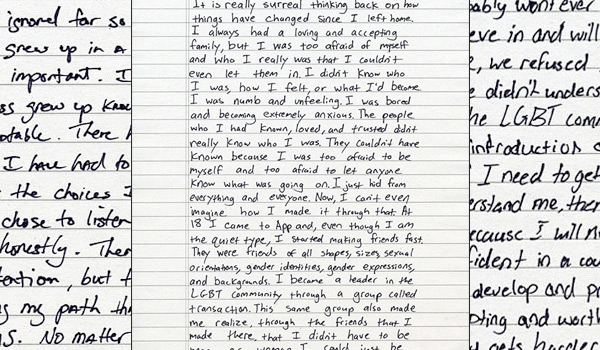 ignored for so
grew up in a
important. I
ss grew up know
otable. There h
I have had to
the choices I
chose to listen
honestly. Ther
tention, but t
g my path th
s. No matter
It is really surreal thinking back on how
things have changed since I left home.
I always had a loving and accepting
family, but I was too afraid of myself
and who I really was that I couldn't
even let them in. I didn't know who
I was, how I felt, or what I'd become
I was numb and unfeeling. I was bored
and becoming extremely anxious. The people
who I had known, loved, and trusted didn't
really know who I was. They couldn't have
known because I was too afraid to be
myself and too afraid to let anyone
know what was going on. I just hid from
everything and everyone. Now, I can't even
imagine how I made it through that. At
18 I came to App and, even though I am
the quiet type, I started making friends fast.
They were friends of all shapes, sizes, sexual
orientations, gender identities, gender expressions,
and backgrounds. I became a leader in the
LGBT community through a group called
transaction. This same group also made
me realize, through the friends that I
made there, that I didn't have to be
woman I could just be
bably wont ever
eve in and will
e, we refused
e didn't unders
he LGBT comm
introduction o
I need to get
erstand me, ther
ecause I will n
fident in a cou
develop and pr
pting and worth
y gets harder